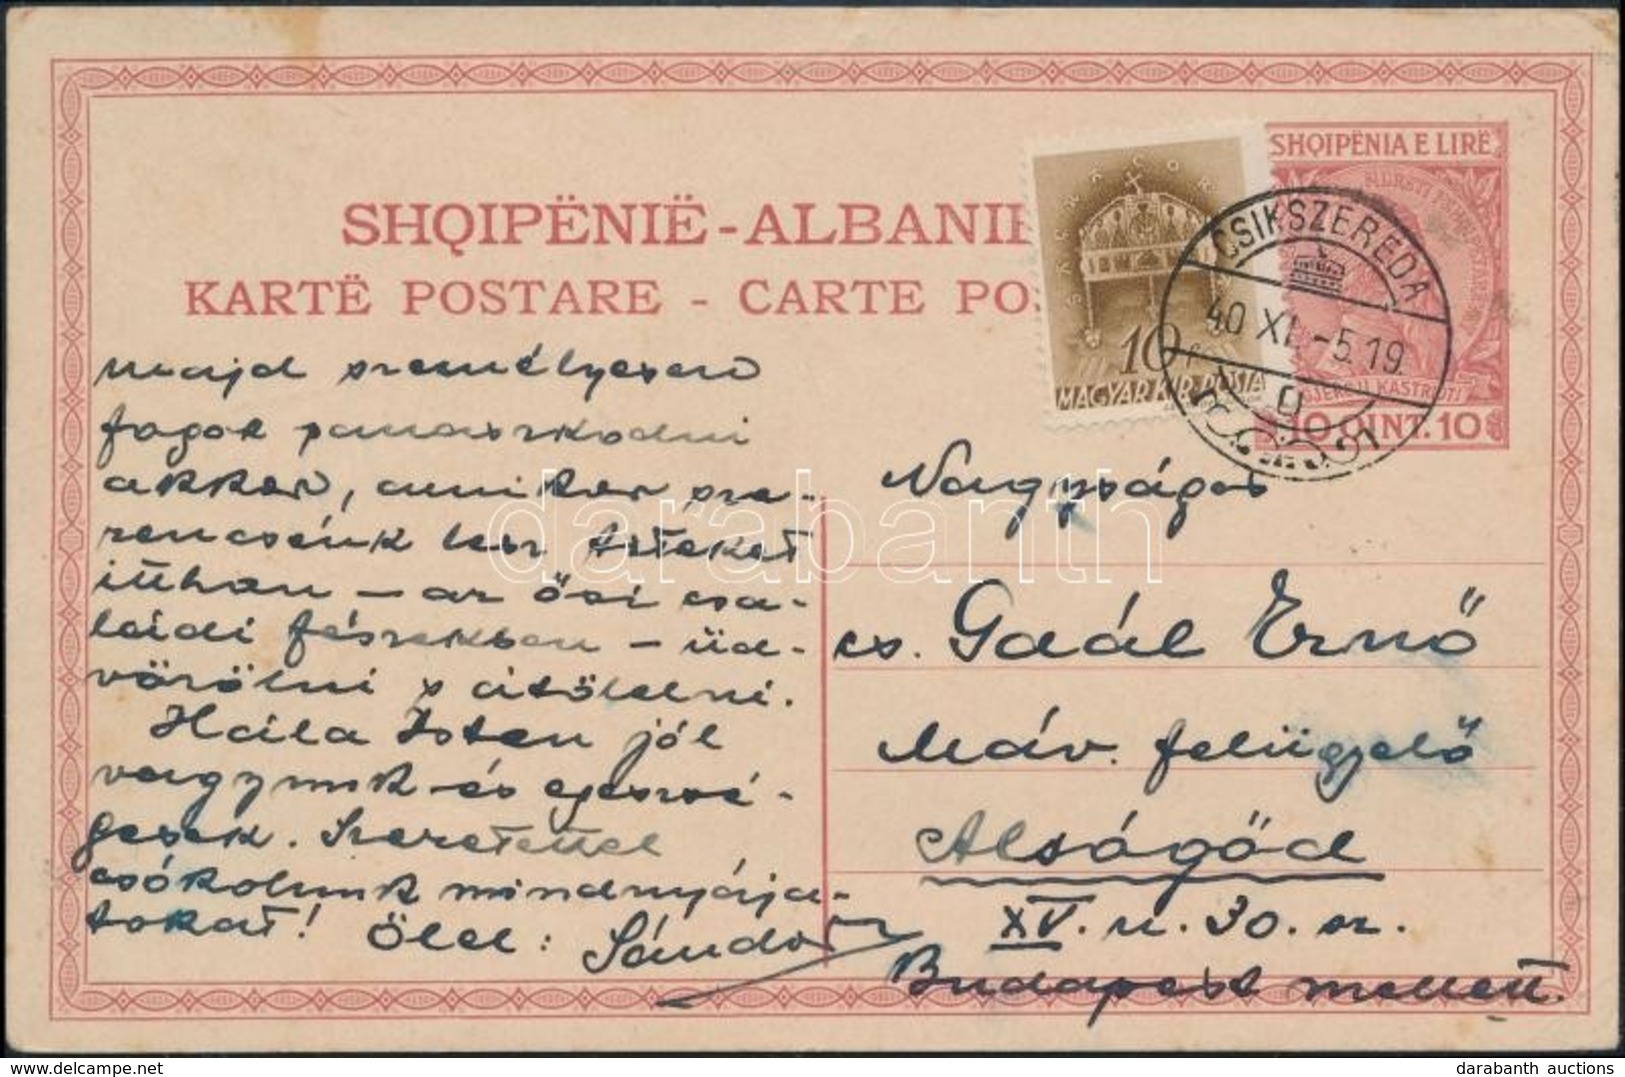 SHQIPËNIA E LIRË
SHQIPËNIË-ALBANIE
KARTË POSTARE - CARTE POS
10 f
MAGYAR KIR. POSTA
CSIKSZEREDA
40 XI. -5. 19
D
GJERGJ KASTRIOTI
10 QINT. 10
majd személyesen
fogok panaszkodni
akkor, amikor sze-
rencsénk lesz titeket
itthon – az ősi csa-
ládi fészekben – üd-
vözölni s átölelni.
Hála Isten jól
vagyunk és egészsé-
gesek. Szeretettel
csókolunk mindnyája-
tokat! Ölel: Sándor
Nagyságos
cs. Gaál Ernő
Máv. felügyelő
Alsógöd
XV. u. 30. sz.
Budapest mellett.
darabanth
darabanth auctions
www.delcampe.net